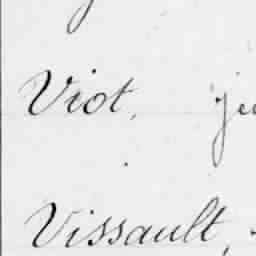 Viot,
Vissault,